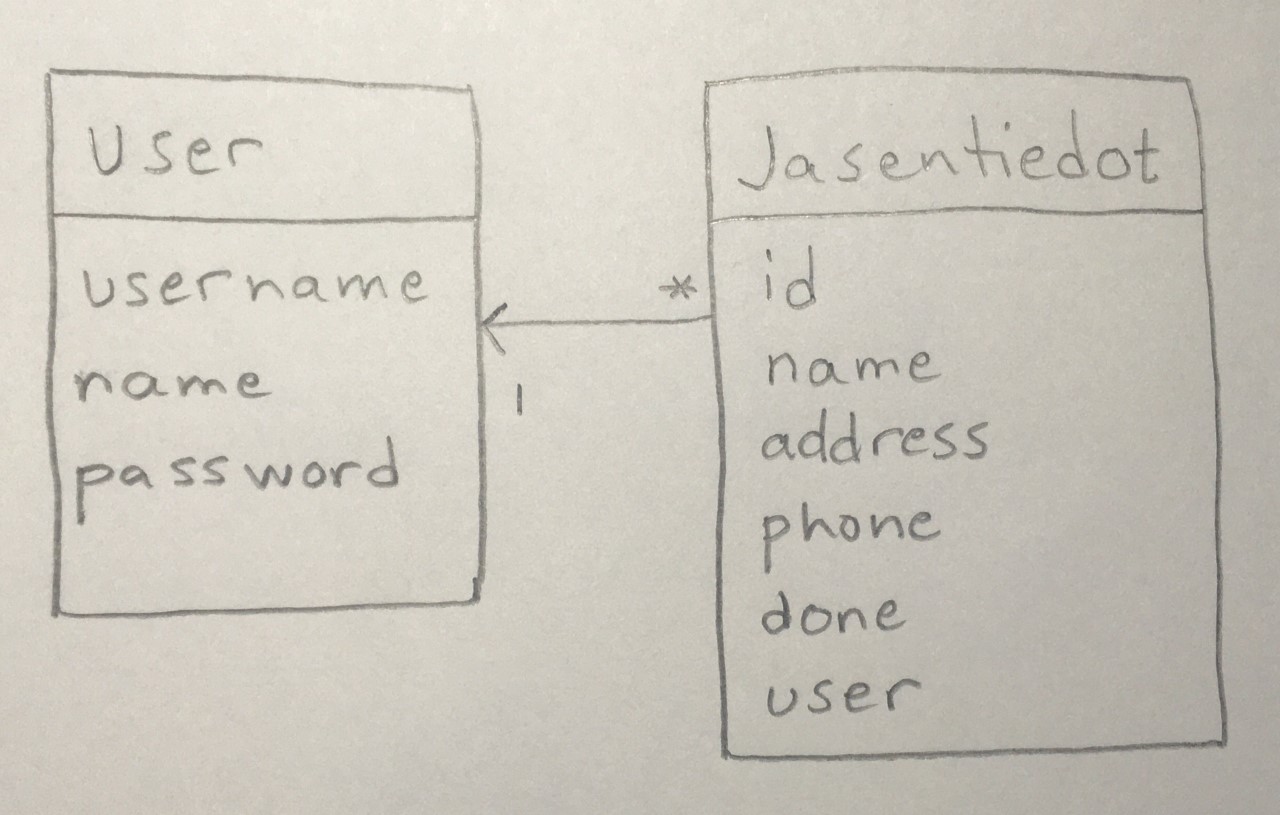 User
username
name
password
*
1
Jasentiedot
id
name
address
phone
done
user